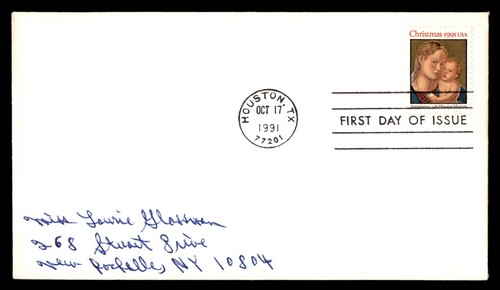 Christmas 1991 USA
HOUSTON, TX
OCT 17
1991
77201
FIRST DAY OF ISSUE
Miss Laurie Glassman
268 Stuart Drive
New Rochelle, NY 10804